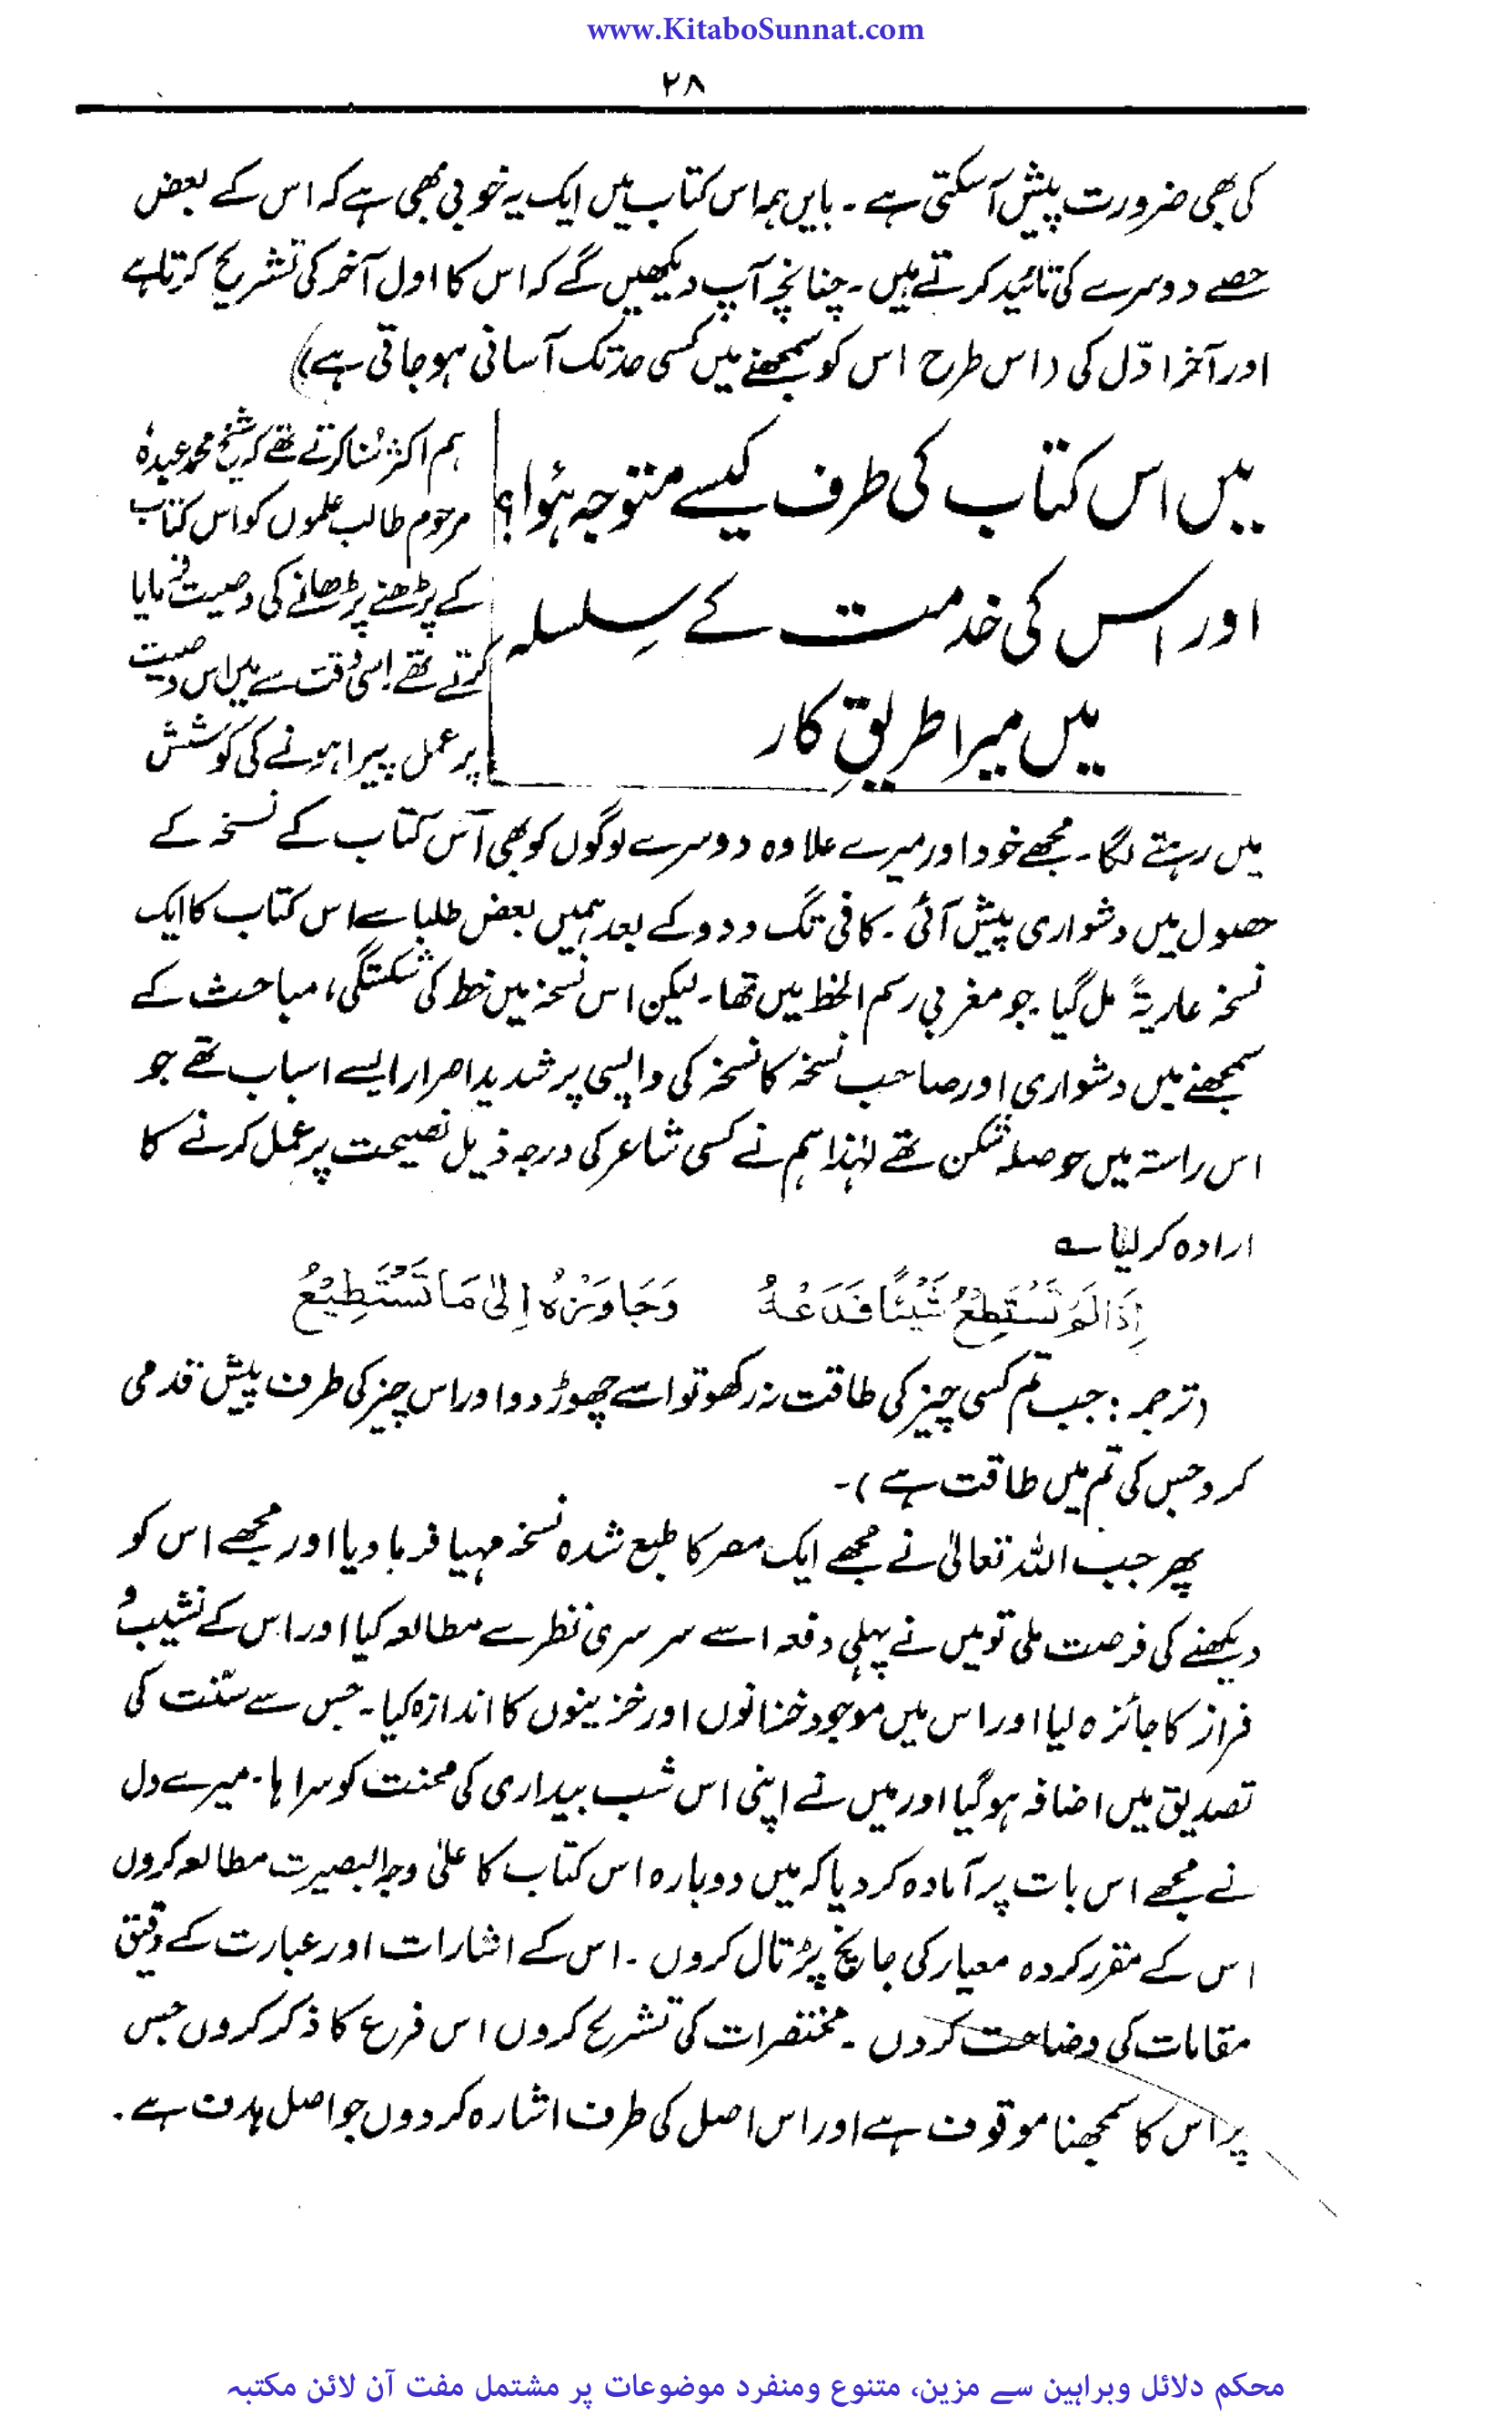 www.KitaboSunnat.com
۲۸
کی بھی ضرورت پیش آسکتی ہے ۔ بایں ہمہ اس کتاب میں ایک یہ خوبی بھی ہے کہ اس کے بعض
حصے دوسرے کی تائید کرتے ہیں ۔ چنانچہ آپ دیکھیں گے کہ اس کا اول آخر کی تشریح کرتا ہے
اور آخر اوّل کی (اس طرح اس کو سمجھنے میں کسی حد تک آسانی ہو جاتی ہے)
میں اس کتاب کی طرف کیسے متوجہ ہُوا؟
اور اس کی خدمت کے سِلسلہ
میں میرا طریقِ کار
ہم اکثر سُنا کرتے تھے کہ شیخ محمد عبدہٗ
مرحوم طالب علموں کو اس کتاب
کے پڑھنے پڑھانے کی وصیت فرمایا
کرتے تھے اسی وقت سے میں اس وصیت
پر عمل پیرا ہونے کی کوشش
میں رہنے لگا ۔ مجھے خود اور میرے علاوہ دوسرے لوگوں کو بھی اس کتاب کے نسخہ کے
حصول میں دشواری پیش آئی ۔ کافی تگ و دو کے بعد ہمیں بعض طلبا سے اس کتاب کا ایک
نسخہ عاریۃً مل گیا جو مغربی رسم الخط میں تھا ۔ لیکن اس نسخہ میں خط کی شکستگی، مباحث کے
سمجھنے میں دشواری اور صاحب نسخہ کا نسخہ کی واپسی پر شدید اصرار ایسے اسباب تھے جو
اس راستہ میں حوصلہ شکن تھے لہٰذا ہم نے کسی شاعر کی درجہ ذیل نصیحت پر عمل کرنے کا
ارادہ کر لیا ؎
إِذَا لَمْ تَسْتَطِعْ شَيْئًا فَدَعْهُ وَجَاوِزْهُ إِلىٰ مَا تَسْتَطِيْعُ
(ترجمہ : جب تم کسی چیز کی طاقت نہ رکھو تو اسے چھوڑ دو اور اس چیز کی طرف پیش قدمی
کرو جس کی تم میں طاقت ہے) ۔
پھر جب اللہ تعالیٰ نے مجھے ایک مصر کا طبع شدہ نسخہ مہیا فرما دیا اور مجھے اس کو
دیکھنے کی فرصت ملی تو میں نے پہلی دفعہ اسے سرسری نظر سے مطالعہ کیا اور اس کے نشیب و
فراز کا جائزہ لیا اور اس میں موجود خزانوں اور خزینوں کا اندازہ کیا ۔ جس سے سنّت کی
تصدیق میں اضافہ ہو گیا اور میں نے اپنی اس شب بیداری کی محنت کو سراہا ۔ میرے دل
نے مجھے اس بات پر آمادہ کر دیا کہ میں دوبارہ اس کتاب کا علیٰ وجہ البصیرت مطالعہ کروں
اس کے مقرر کردہ معیار کی جانچ پڑتال کروں ۔ اس کے اشارات اور عبارت کے دقیق
مقامات کی وضاحت کردں ۔ مختصرات کی تشریح کروں اس فرع کا ذکر کروں جس
پر اس کا سمجھنا موقوف ہے اور اس اصل کی طرف اشارہ کردوں جو اصل ہدف ہے ۔
محکم دلائل وبراہین سے مزین، متنوع ومنفرد موضوعات پر مشتمل مفت آن لائن مکتبہ